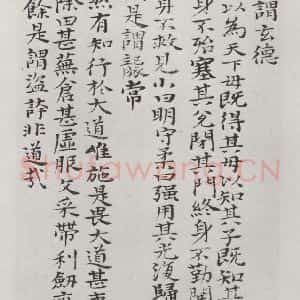 謂玄德
以為天下母既得其母以知其子既知其
身不殆塞其兌閉其門終身不勤開
身不救見小曰明守柔曰强用其光復歸
是謂襲常
然有知行於大道唯施是畏大道甚夷
除田甚蕪倉甚虛服文采帶利劍
餘是謂盜誇非道哉
Shufawang.CN